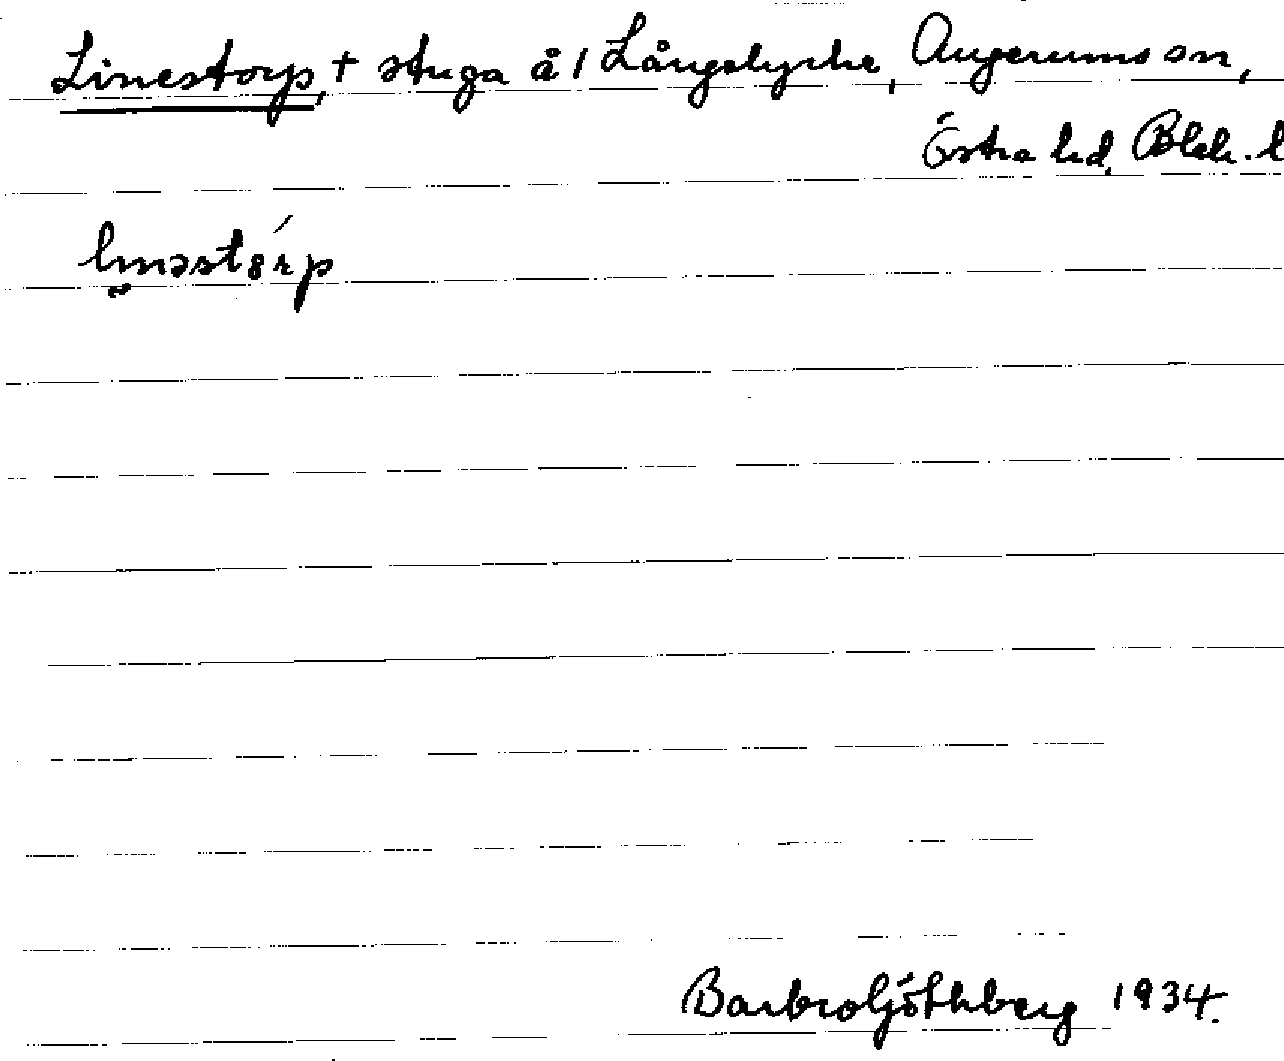 Linestorp, + stuga å 1 Långelycke, Augerums sn,
Östra hd, Blek. l
linəstórp
Barbro Göthberg 1934.